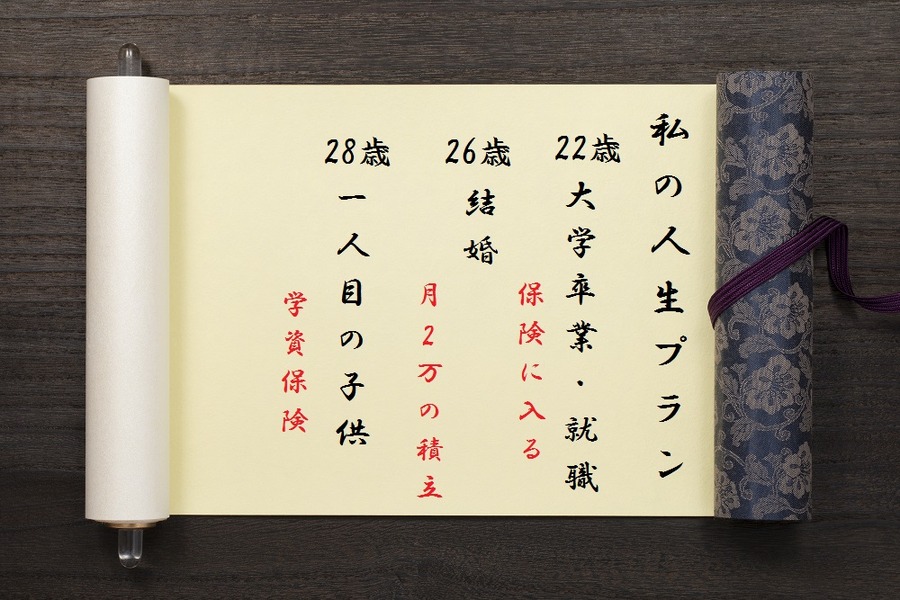 私の人生プラン
22歳大学卒業・就職
保険に入る
26歳結婚
月2万の積立
28歳一人目の子供
学資保険